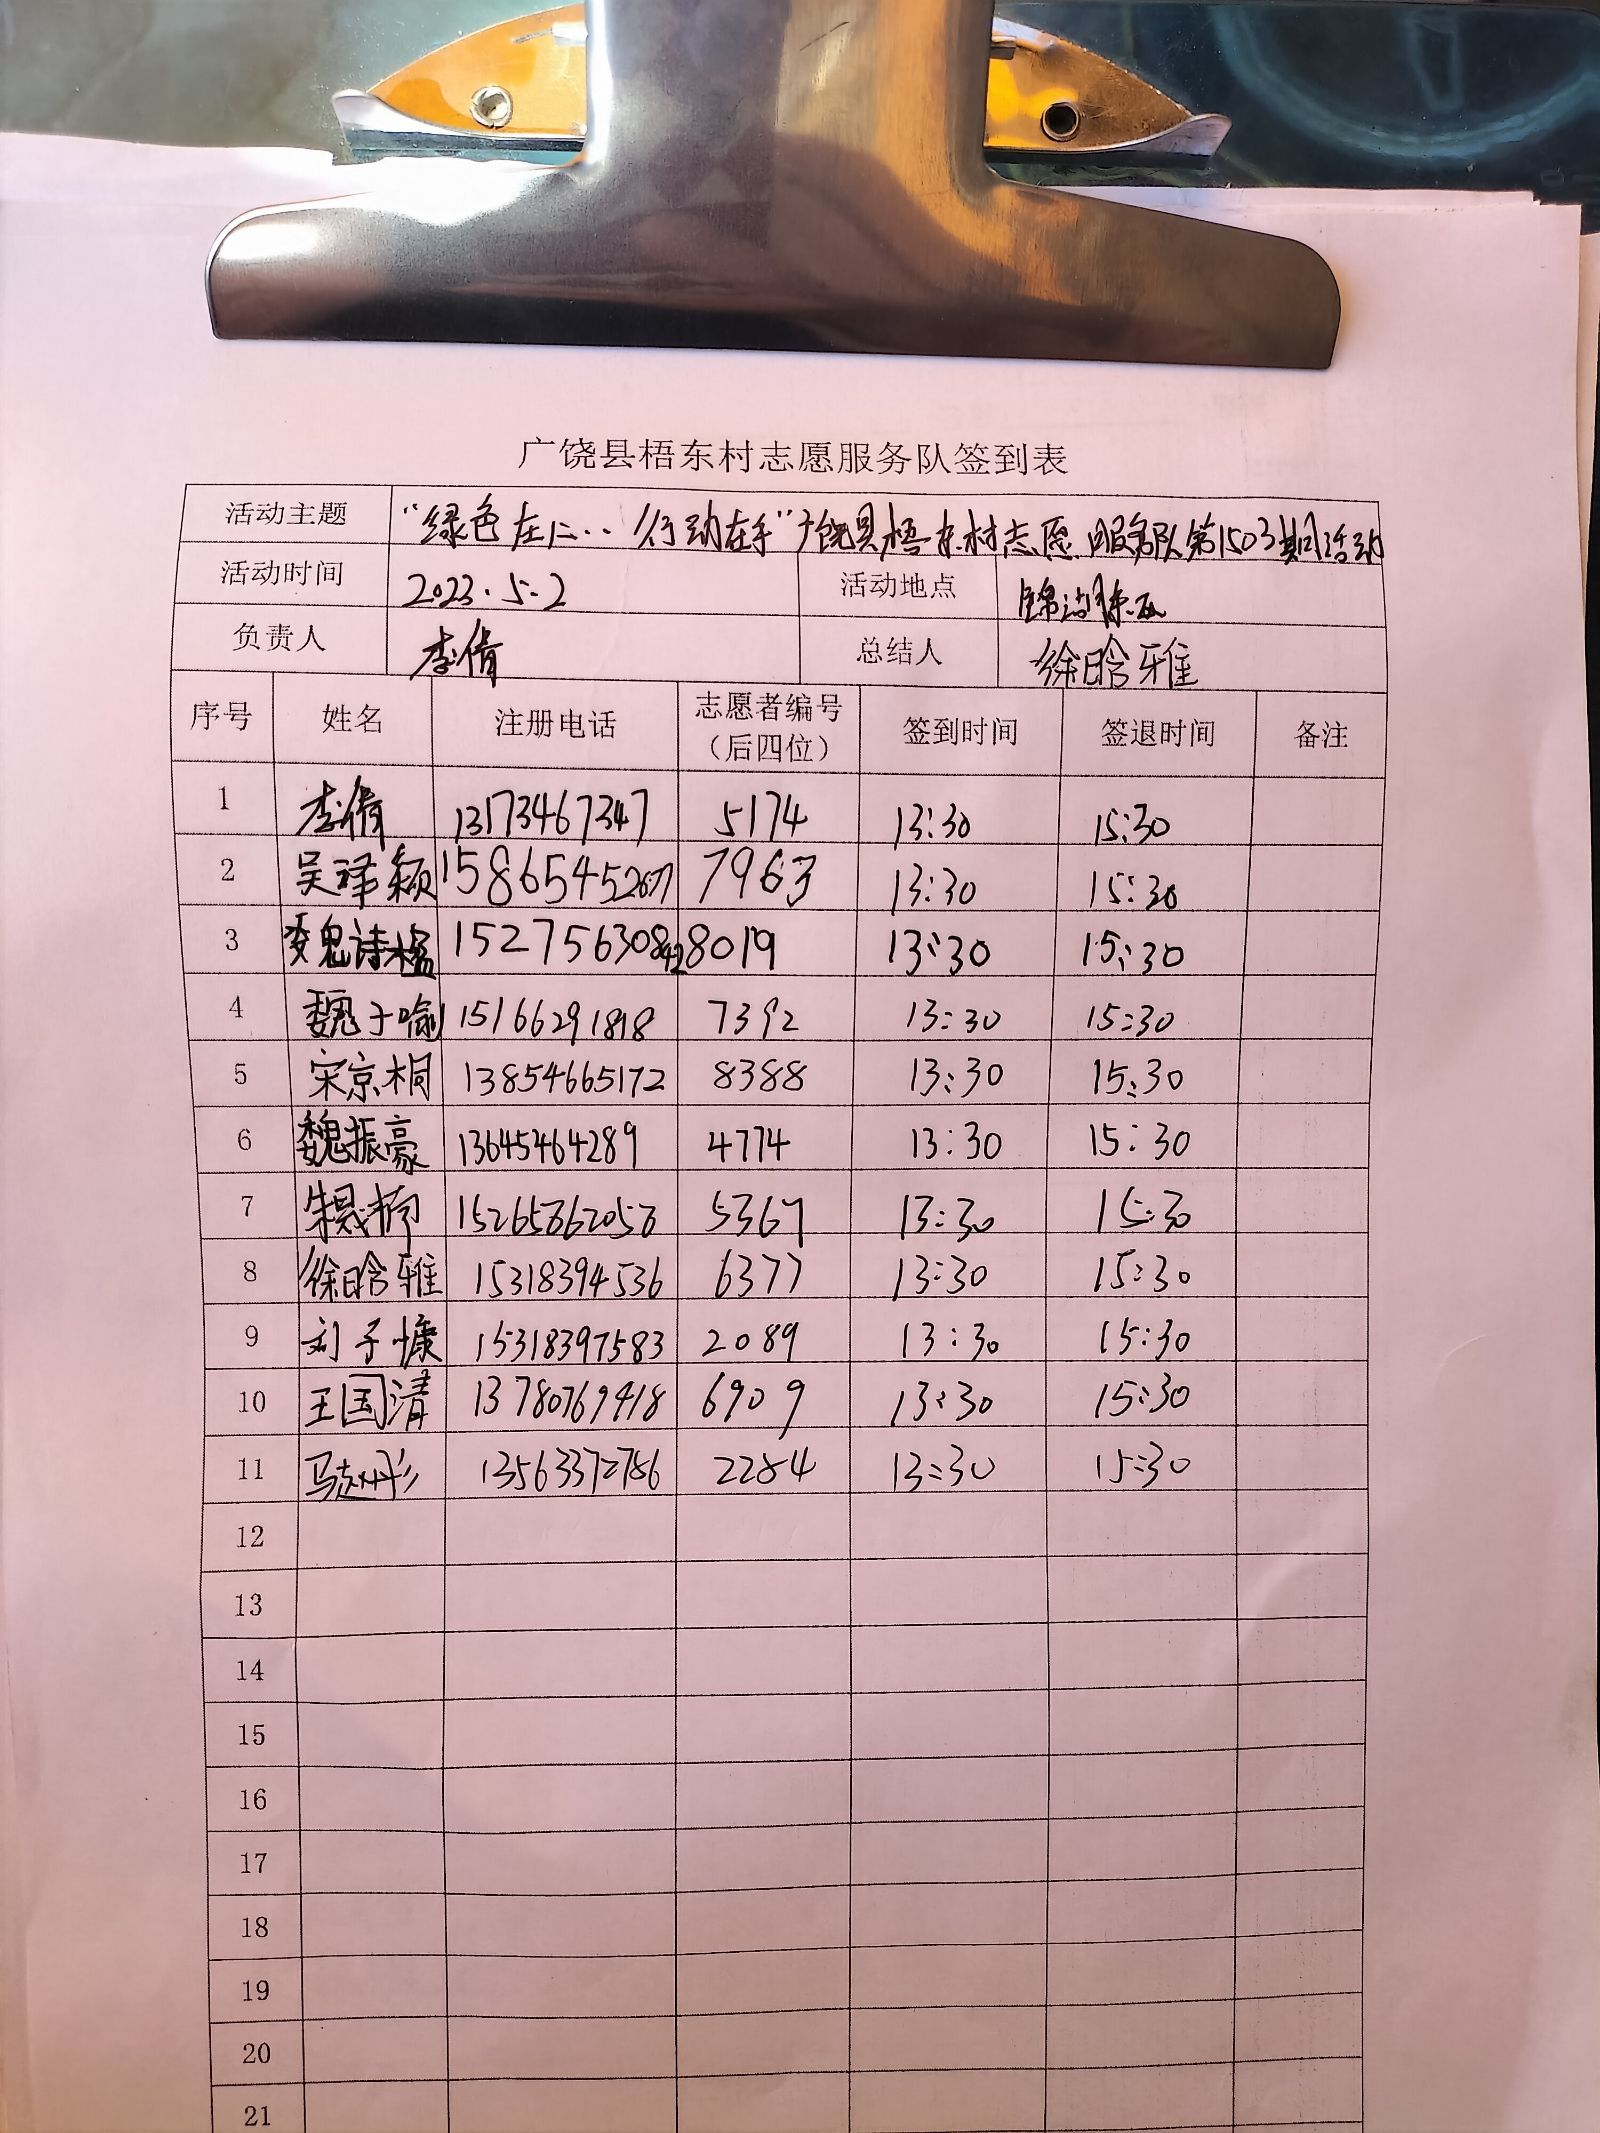 广饶县梧东村志愿服务队签到表
活动主题 “绿色在心 行动在手”广饶县梧东村志愿服务队第1503期活动
活动时间 2023.5.2 活动地点
负责人 李倩 总结人 徐晗雅
序号 姓名 注册电话 志愿者编号（后四位） 签到时间 签退时间 备注
1 李倩 13173467347 5174 13:30 15:30
2 吴译颖 15865452677 7963 13:30 15:30
3 魏诗楹 15275630842 8019 13:30 15:30
4 魏子喻 15166291818 7392 13:30 15:30
5 宋京桐 13854665172 8388 13:30 15:30
6 魏振豪 13645464289 4774 13:30 15:30
7 朱晟楠 15265862058 5367 13:30 15:30
8 徐晗雅 15318394536 6377 13:30 15:30
9 刘子慷 15318397583 2089 13:30 15:30
10 王国清 13780769418 6909 13:30 15:30
11 马赵彤 13563372786 2284 13:30 15:30
12
13
14
15
16
17
18
19
20
21